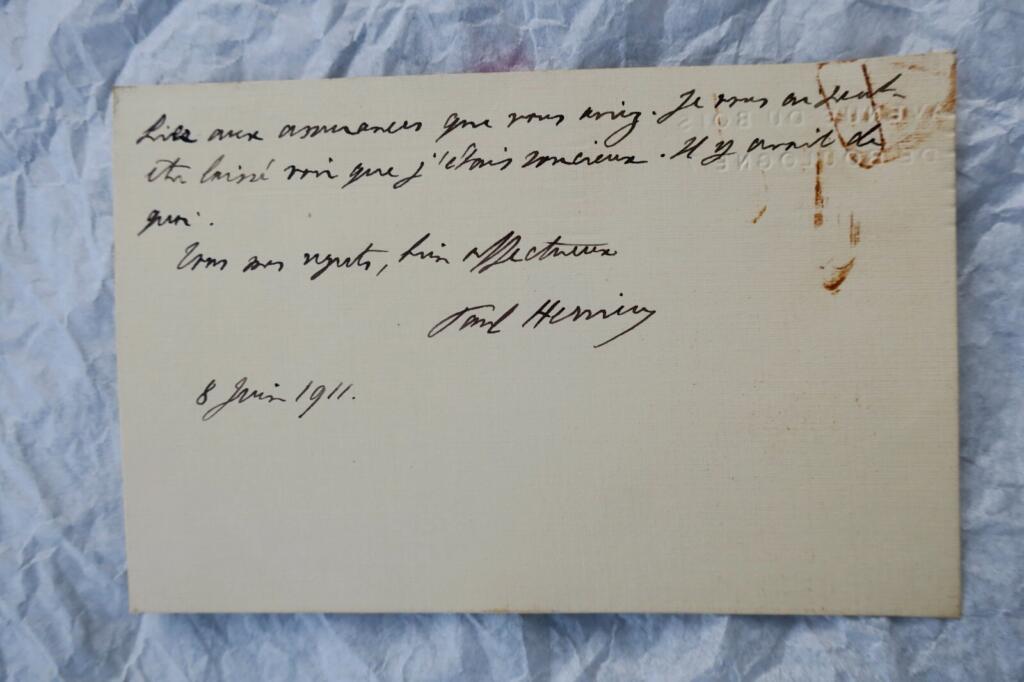 liées aux assurances que vous aviez. Je vous ai peut-
être laissé voir que j'étais soucieux. Il y avait de
quoi.
Tous mes regrets, bien affectueux
Paul Hervieu
8 Juin 1911.
AVENUE DU BOIS
DE BOULOGNE